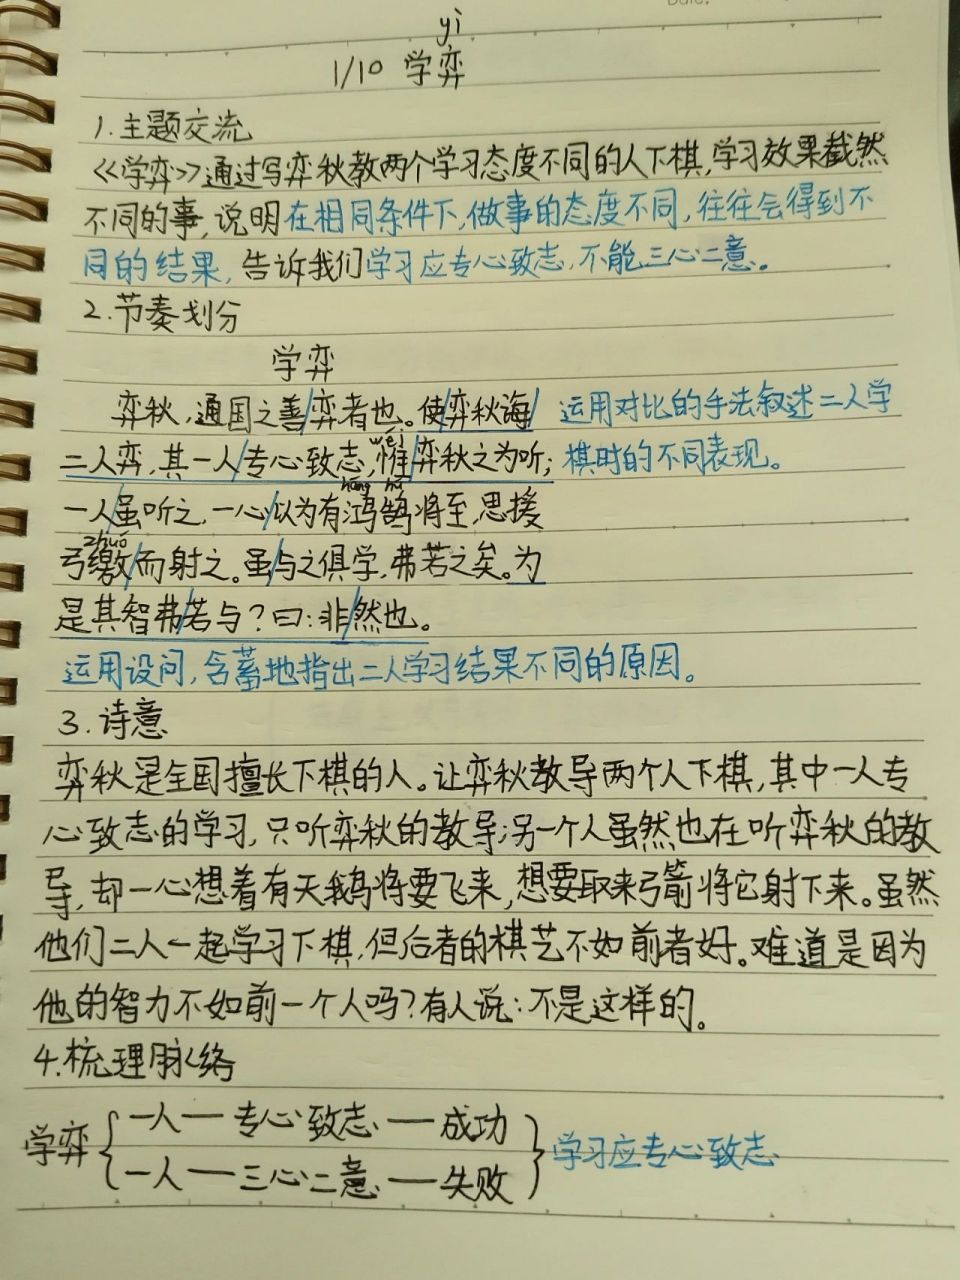 Date.
yì
1/10 学弈
1.主题交流
《学弈》通过写弈秋教两个学习态度不同的人下棋,学习效果截然
不同的事,说明在相同条件下,做事的态度不同,往往会得到不
同的结果,告诉我们学习应专心致志,不能三心二意。
2.节奏划分
学弈
弈秋,通国之善/弈者也。使/弈秋诲/ 运用对比的手法叙述二人学
wéi
二人弈,其一人/专心致志,惟/弈秋之为听; 棋时的不同表现。
hóng hú
一人/虽听之,一心/以为有鸿鹄将至,思援
zhuó
弓缴/而射之。虽/与之俱学,弗若之矣。为
是其智弗/若与?曰:非/然也。
运用设问,含蓄地指出二人学习结果不同的原因。
3.诗意
弈秋是全国擅长下棋的人。让弈秋教导两个人下棋,其中一人专
心致志的学习,只听弈秋的教导;另一个人虽然也在听弈秋的教
导,却一心想着有天鹅将要飞来,想要取来弓箭将它射下来。虽然
他们二人一起学习下棋,但后者的棋艺不如前者好。难道是因为
他的智力不如前一个人吗?有人说:不是这样的。
4.梳理脉络
一人——专心致志——成功
学弈{ }学习应专心致志
一人——三心二意——失败